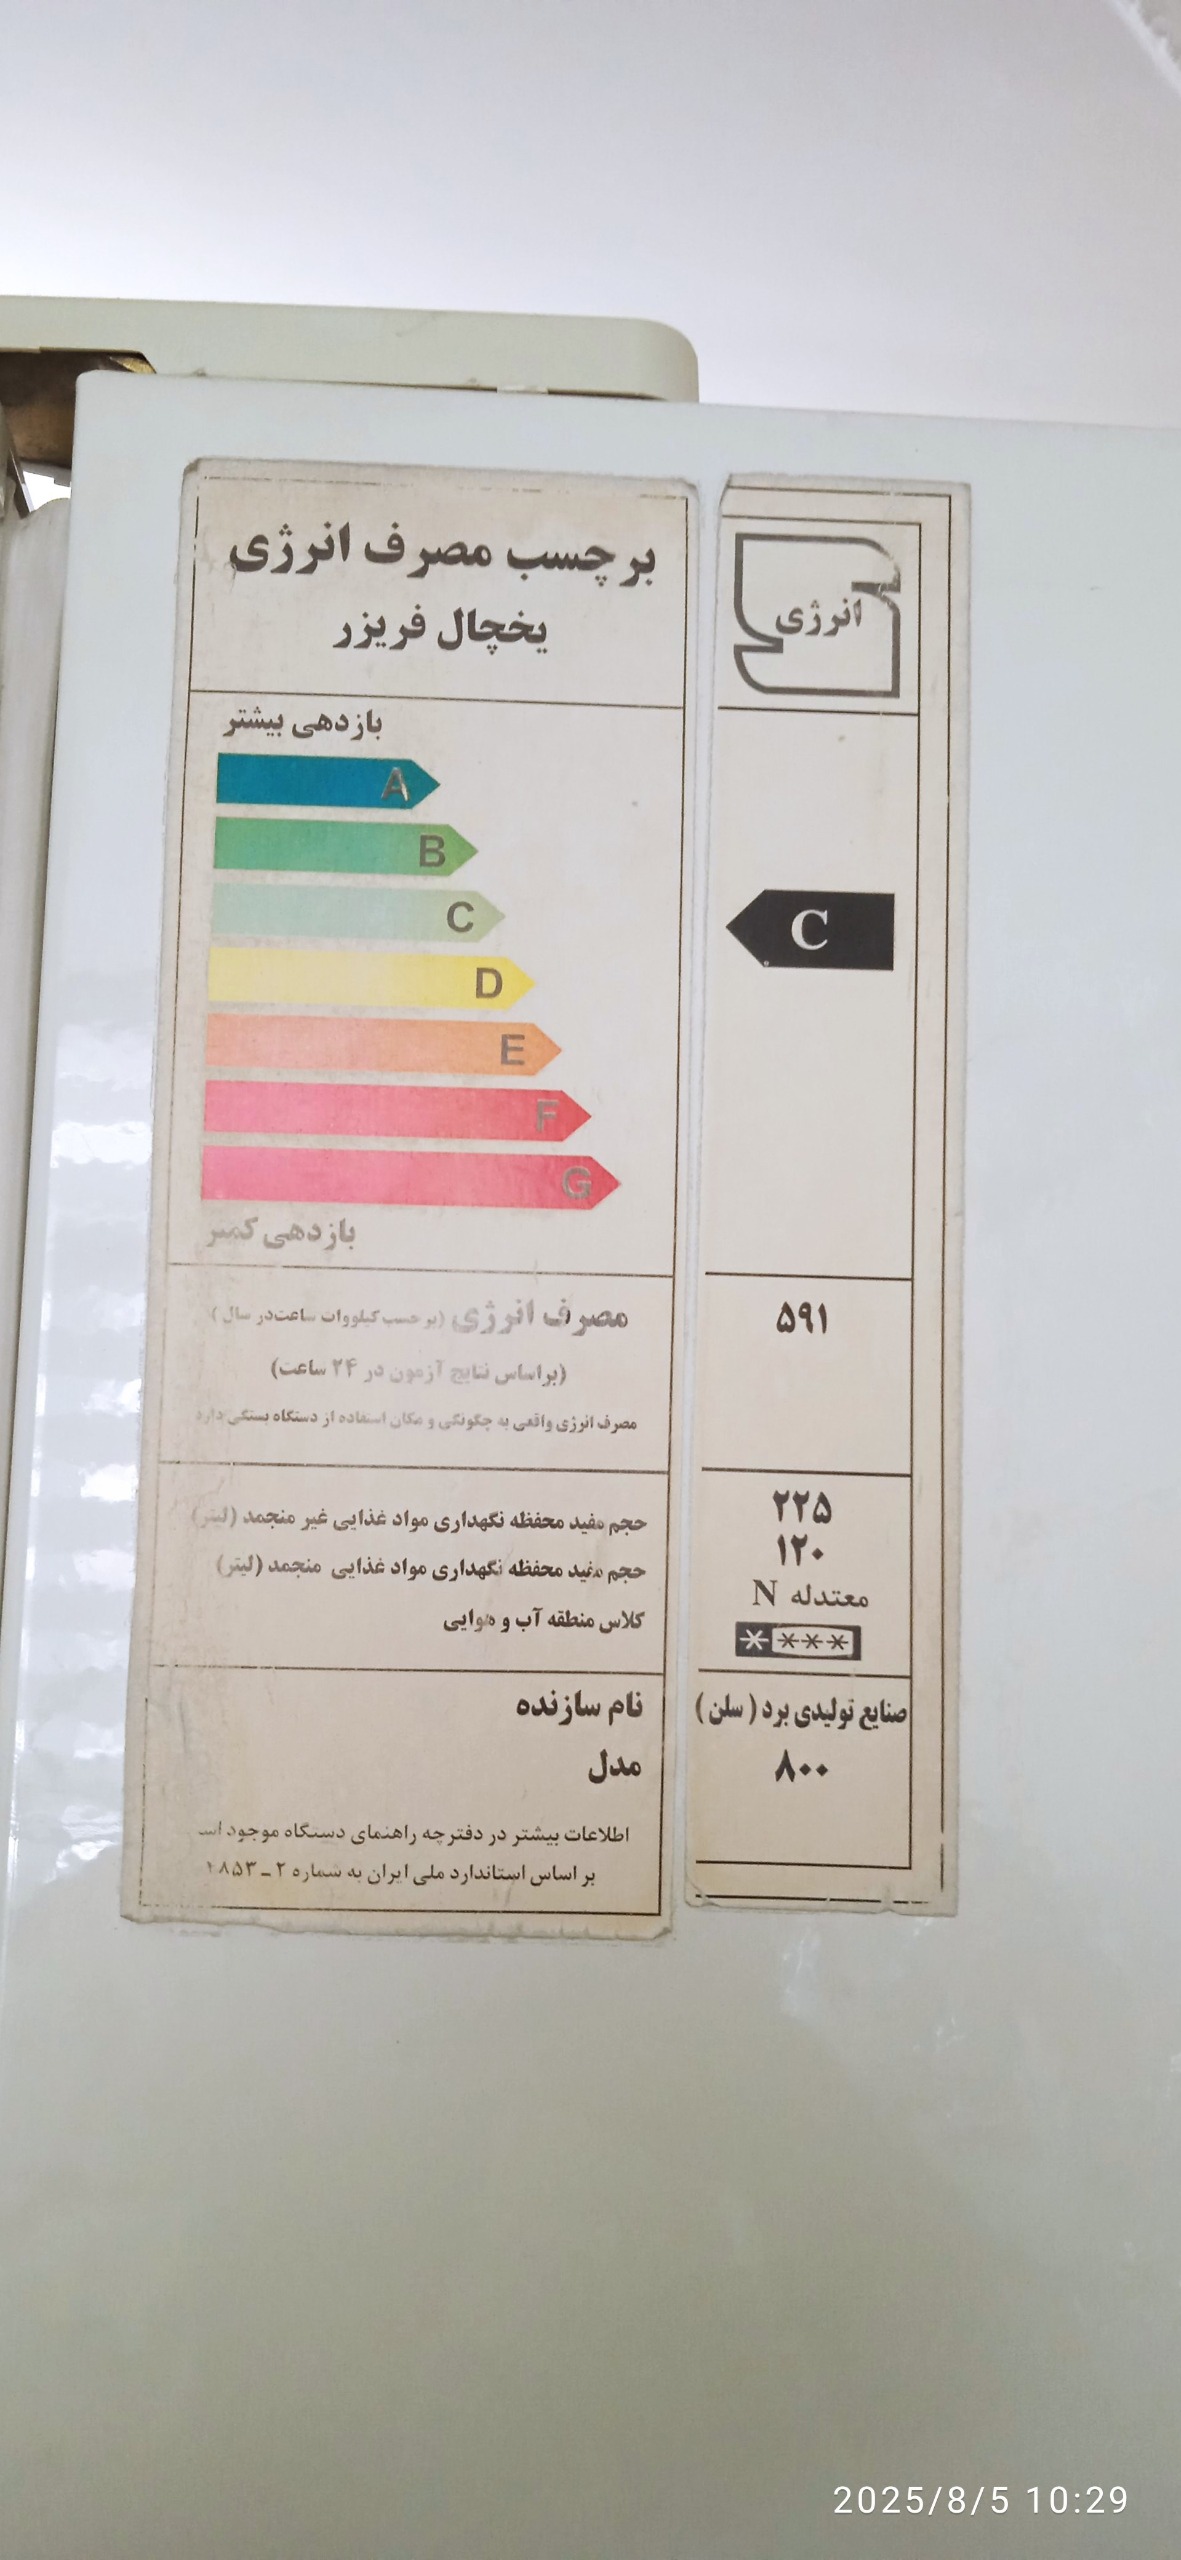 برچسب مصرف انرژی
یخچال فریزر
انرژی
بازدهی بیشتر
A
B
C
C
D
E
F
G
بازدهی کمتر
مصرف انرژی (بر حسب کیلووات ساعت در سال) ۵۹۱
(براساس نتایج آزمون در ۲۴ ساعت)
مصرف انرژی واقعی به چگونگی و مکان استفاده از دستگاه بستگی دارد
حجم مفید محفظه نگهداری مواد غذایی غیر منجمد (لیتر) ۲۲۵
حجم مفید محفظه نگهداری مواد غذایی منجمد (لیتر) ۱۲۰
کلاس منطقه آب و هوایی معتدله N
****
نام سازنده صنایع تولیدی برد (سلن)
مدل ۸۰۰
اطلاعات بیشتر در دفترچه راهنمای دستگاه موجود
بر اساس استاندارد ملی ایران به شماره ۲ ـ
2025/8/5 10:29